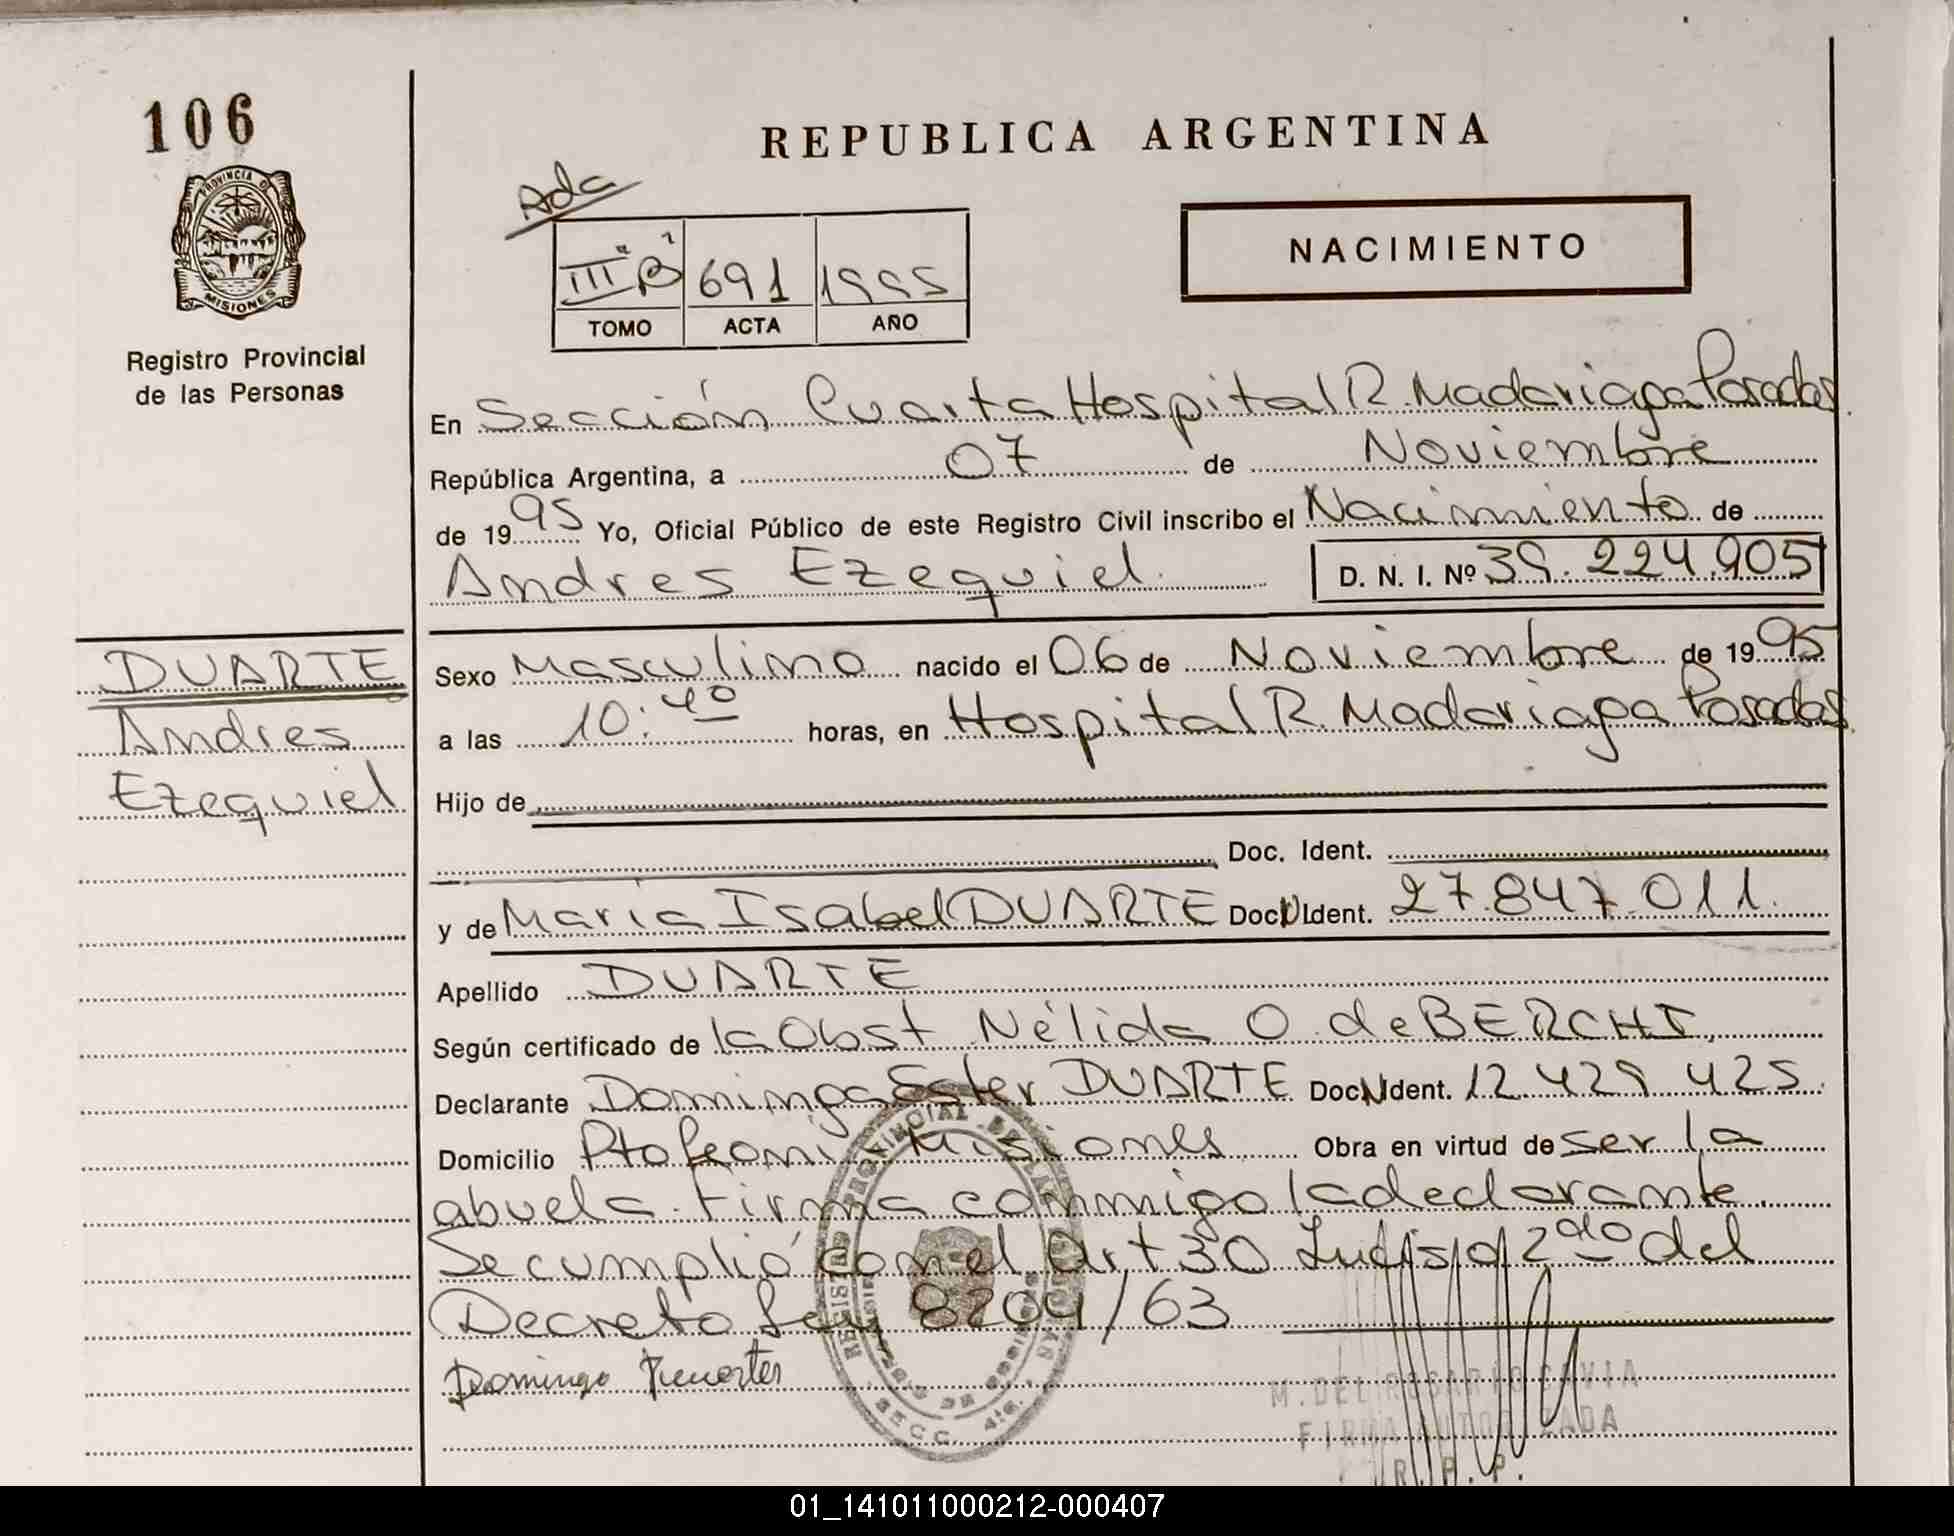 106
REPUBLICA ARGENTINA
PROVINCIA D
MISIONES
Registro Provincial
de las Personas
Ada
III "B" 691 1995
TOMO ACTA AÑO
NACIMIENTO
En Sección Cuarta Hospital R. Madariaga Posadas
República Argentina, a 07 de Noviembre
de 1995 Yo, Oficial Público de este Registro Civil inscribo el Nacimiento de
Andres Ezequiel. D. N. I. Nº 39.224.905
DUARTE
Andres
Ezequiel
Sexo Masculino nacido el 06 de Noviembre de 1995
a las 10:40 horas, en Hospital R. Madariaga Posadas
Hijo de
Doc. Ident.
y de Maria Isabel DUARTE Doc N Ident. 27.847.011.
Apellido DUARTE
Según certificado de la Obst Nélida O. de BERCHI,
Declarante Dominga Ester DUARTE Doc N Ident. 12.429.425.
Domicilio Pto Leoni Misiones Obra en virtud de ser la
abuela. Firma conmigo la declarante
Se cumplió con el Art 30 2do del
Decreto Ley 8204/63
M. DEL ROSARIO GAVIA
FIRMA AUTORIZADA
R. P. P.
01_141011000212-000407